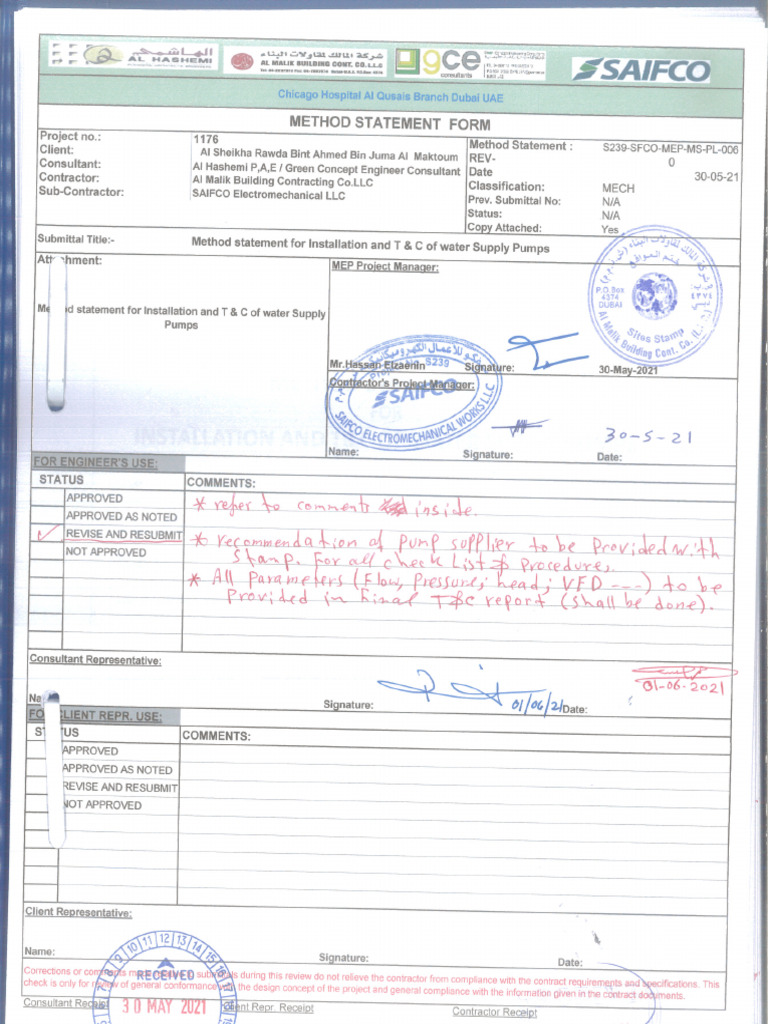 الهاشمي
AL HASHEMI
شركة المالك لمقاولات البناء
AL MALIK BUILDING CONT. CO. L.L.C
gce
consultants
SAIFCO
Chicago Hospital Al Qusais Branch Dubai UAE
METHOD STATEMENT FORM
Project no.: 1176
Client: Al Sheikha Rawda Bint Ahmed Bin Juma Al Maktoum
Consultant: Al Hashemi P,A,E / Green Concept Engineer Consultant
Contractor: Al Malik Building Contracting Co.LLC
Sub-Contractor: SAIFCO Electromechanical LLC
Method Statement : S239-SFCO-MEP-MS-PL-006
REV- 0
Date 30-05-21
Classification: MECH
Prev. Submittal No: N/A
Status: N/A
Copy Attached: Yes
Submittal Title:- Method statement for Installation and T & C of water Supply Pumps
MEP Project Manager:
statement for Installation and T & C of water Supply
Pumps
P.O.Box
4374
DUBAI
٤٣٧٤
Sites Stamp
Al Malik Building Cont. Co. (L.L.
Mr.Hassan Elzaenin Signature: 30-May-2021
S239
SAIFCO
SAIFCO ELECTROMECHANICAL WORKS L.L.C
Contractor's Project Manager:
30-5-21
Name: Signature: Date:
INSTALLATION AND
FOR ENGINEER'S USE:
STATUS COMMENTS:
APPROVED
APPROVED AS NOTED
✓ REVISE AND RESUBMIT
NOT APPROVED
* refer to comments inside.
* recommendation of pump supplier to be Provided with
Stamp. For all check List & Procedure,
* All Parameters (Flow, Pressure, head, VFD ---) to be
Provided in final T&C report (shall be done).
Consultant Representative:
Signature: 01/06/21 Date: 01-06-2021
CLIENT REPR. USE:
COMMENTS:
APPROVED
APPROVED AS NOTED
REVISE AND RESUBMIT
NOT APPROVED
Client Representative:
Name: Signature: Date:
7 8 9 10 11 12 13 14 15 16
RECEIVED
30 MAY 2021
Corrections or during this review do not relieve the contractor from compliance with the contract requirements and specifications. This
check is only for review of general conformance the design concept of the project and general compliance with the information given in the contract documents.
Consultant Receipt Client Repr. Receipt Contractor Receipt